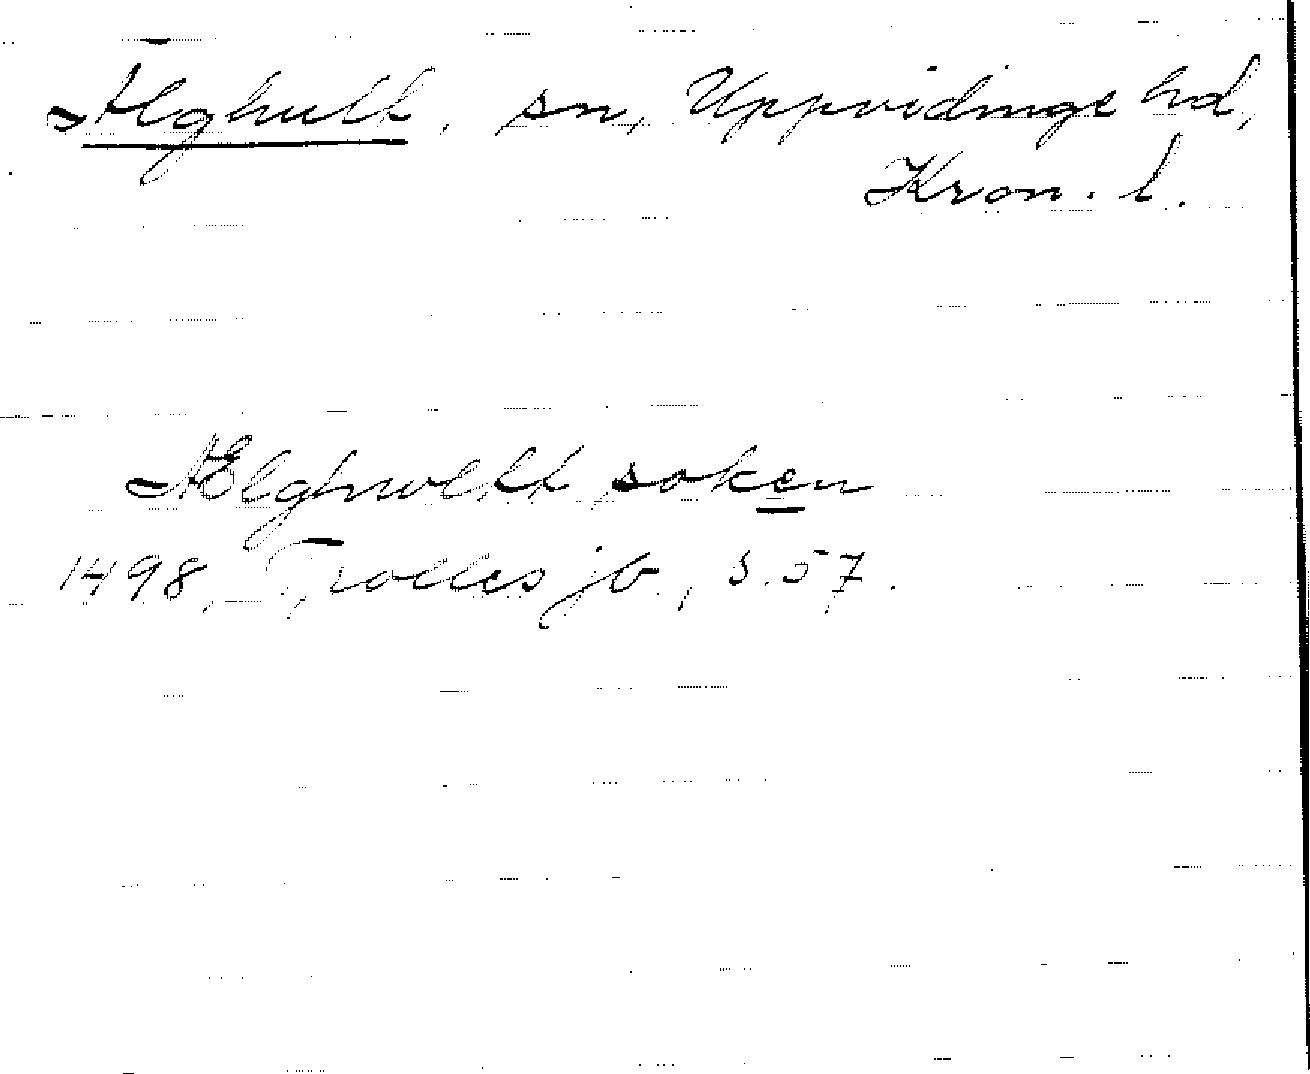 Älghult, sn, Uppvidinge hd,
Kron. l.
Ælghwllt soken
1498, Trolles jb., s. 57.